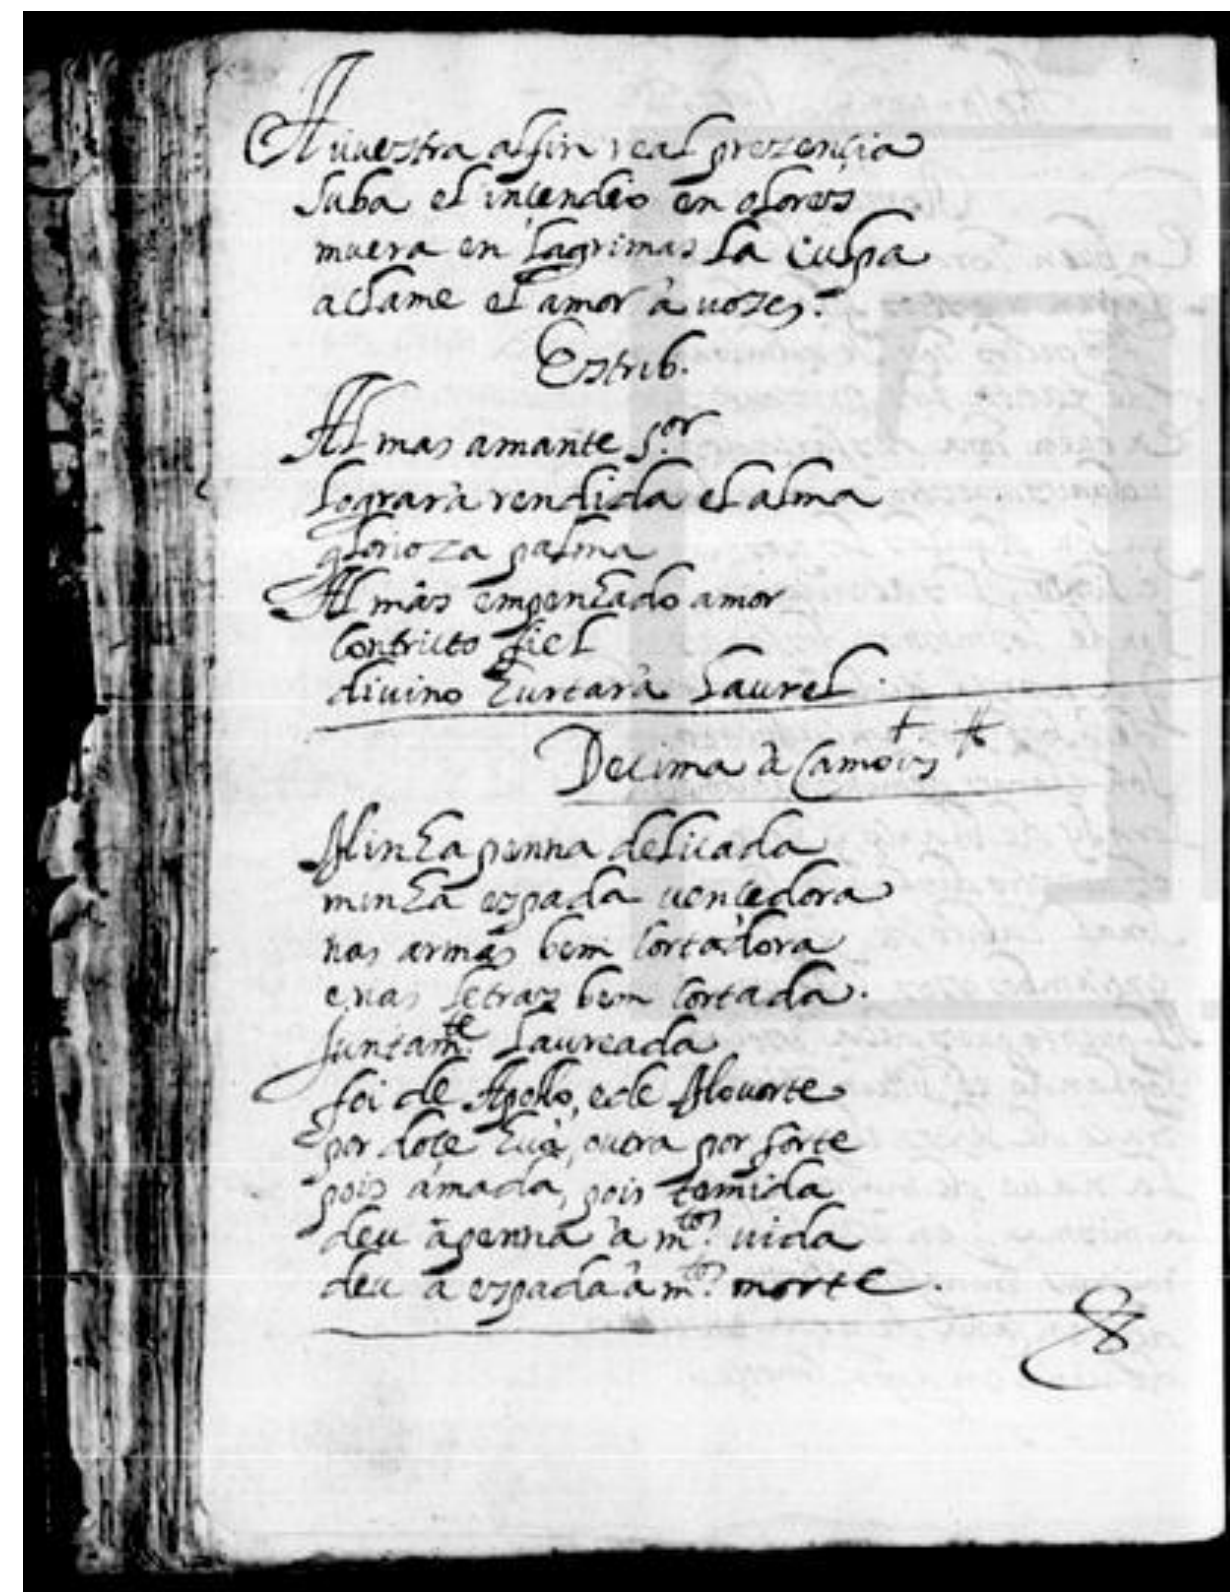 A uuestra alfin real prezençia
suba el inçendio en olores
muera en lagrimas la culpa
aclame el amor à uozes.
Estrib.
Al mas amante S.or
lograrà rendida el alma
glorioza palma
Al mas empenhado amor
contricto fiel
divino hurtarà laurel.
Decima à Camois
Minha penna delicada
minha espada uencedora
nas armas bem cortadora
e nas letras bem cortada.
Juntam.te laureada
foi de Apollo, e de Mouorte
por dote hũa, outra por sorte
pois amada, pois temida
deu a penna à m.tos uida
deu a espada à m.tos morte.